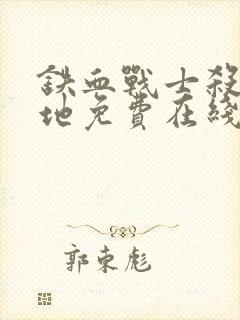 鉄血戰士殺
地免費在綫
郭東彪